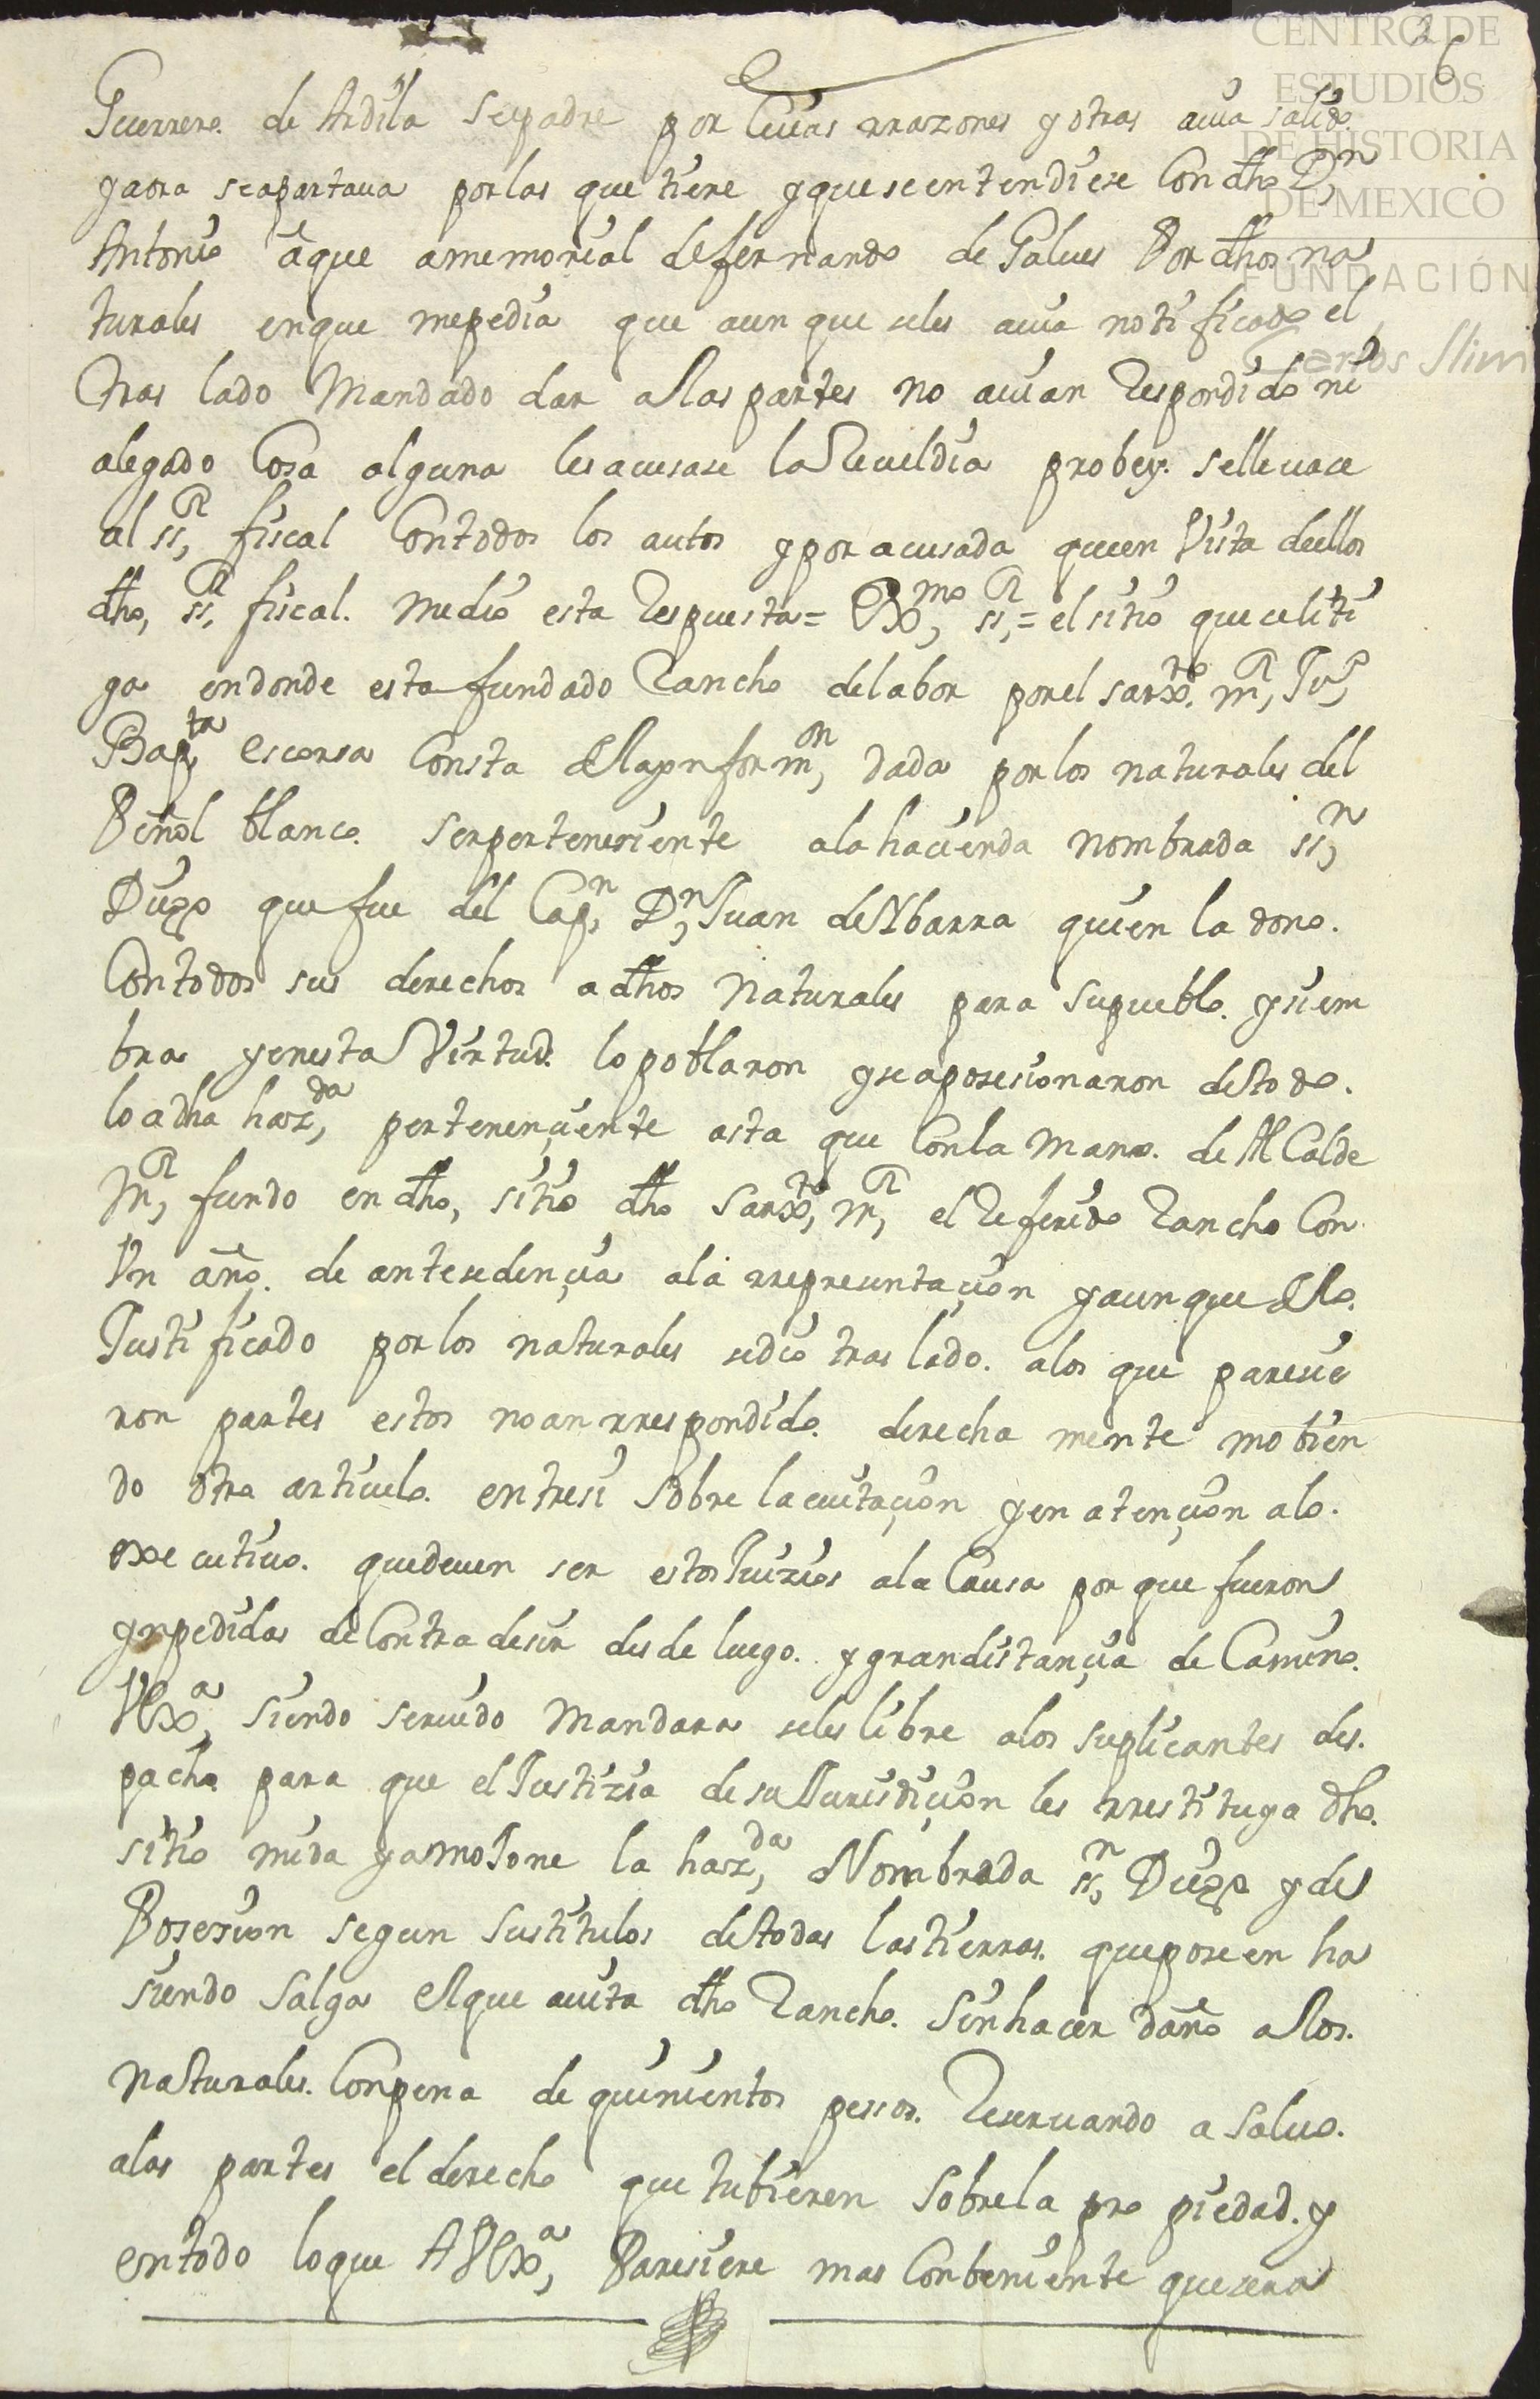 CENTRO DE
ESTUDIOS
DE HISTORIA
DE MEXICO
FUNDACIÓN
Carlos Slim
26
Guerrero. de Ardila Supadre por Cuias rrazones y otras auia salido.
y aora seapartaua porlas que tiene y queseentendiese Con dho Dn
Antonio âque amemorial defernando de Galues Por dhos na
turales enque mepedia que aunque seles auia notificado el
tras lado Mandado dar allas partes no auian Respondido ni
alegado Cosa alguna les acusase la Reueldia probey. sellevace
al ssr, fiscal Contodos los autos y por acusada quien Vista deellos
dho, ssr, fiscal. medio esta Respuesta = Exmo, ssr, = el sitio que seliti
ga endonde esta fundado Rancho delabor porel sarxto. mr, Jun,
Bapta, escorsa Consta dellaynformon, dada porlos naturales del
Peñol blanco. serperteneciente ala hacienda nombrada ssn,
Diego que fue del Capn, Dn, Juan deYbarra quien la dono.
Contodos sus derechos a dhos naturales para supueblo. y siem
bra yenesta Virtud. lo poblaron y seaposesionaron detodo.
lo a dha hazda, pertenenciente asta que Conla mano. de Al Calde
Mr, fundo en dho, sitio dho sarxto, mr, el Referido Rancho Con
Vn año. de antesedençia ala rrepresentaçion yaunque dello.
Justificado porlos naturales sedio tras lado. alos que parecie
ron partes estos noan rrespondido. derecha mente mobien
do otro articulo. entresi sobre lacuitaçion y en atençion alo.
executiuo. quedeuen ser estos Juizios ala Causa por que fueron
ynpedidas de Contra desir des de luego. y grandistançia de Camino.
VExa, siendo seruido mandara seles libre alos suplicantes des.
pacho para que el Justizia desu Jurisdiçion les rrestituya dho.
sitio mida yamoJone la hazda, Nombrada ssn, Diego y de
Posesion segun sustitulos detodas lastierras. queposeen ha
siendo salga elque auita dho Rancho. sinhacer daño allos.
naturales. Conpena de quinientos pessos. Reseruando a saluo.
alas partes el derecho que tubieren sobrela pro piedad. y
entodo loque A VExa, Paresiere mas Conbeniente quesera